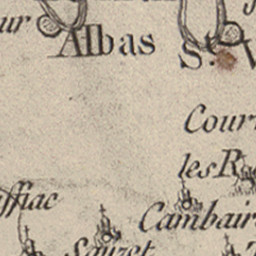 ur
Albas
St. V
Cour
les R
ffiac
Cambair
Sauzet